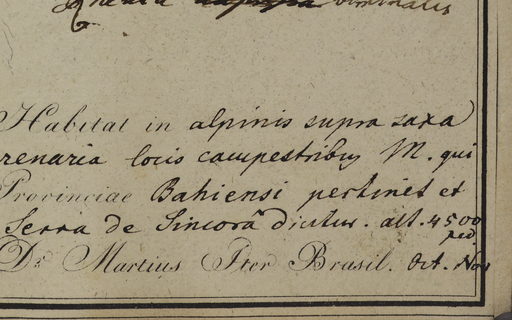 viminalis
Habitat in alpinis supra saxa
renaria locis campestribus M. qui
Provinciae Bahiensi pertinet et
Serra de Sincorâ dicitur. alt. 4500
ped.
Dr. Martius Iter Brasil. Oct. Nov